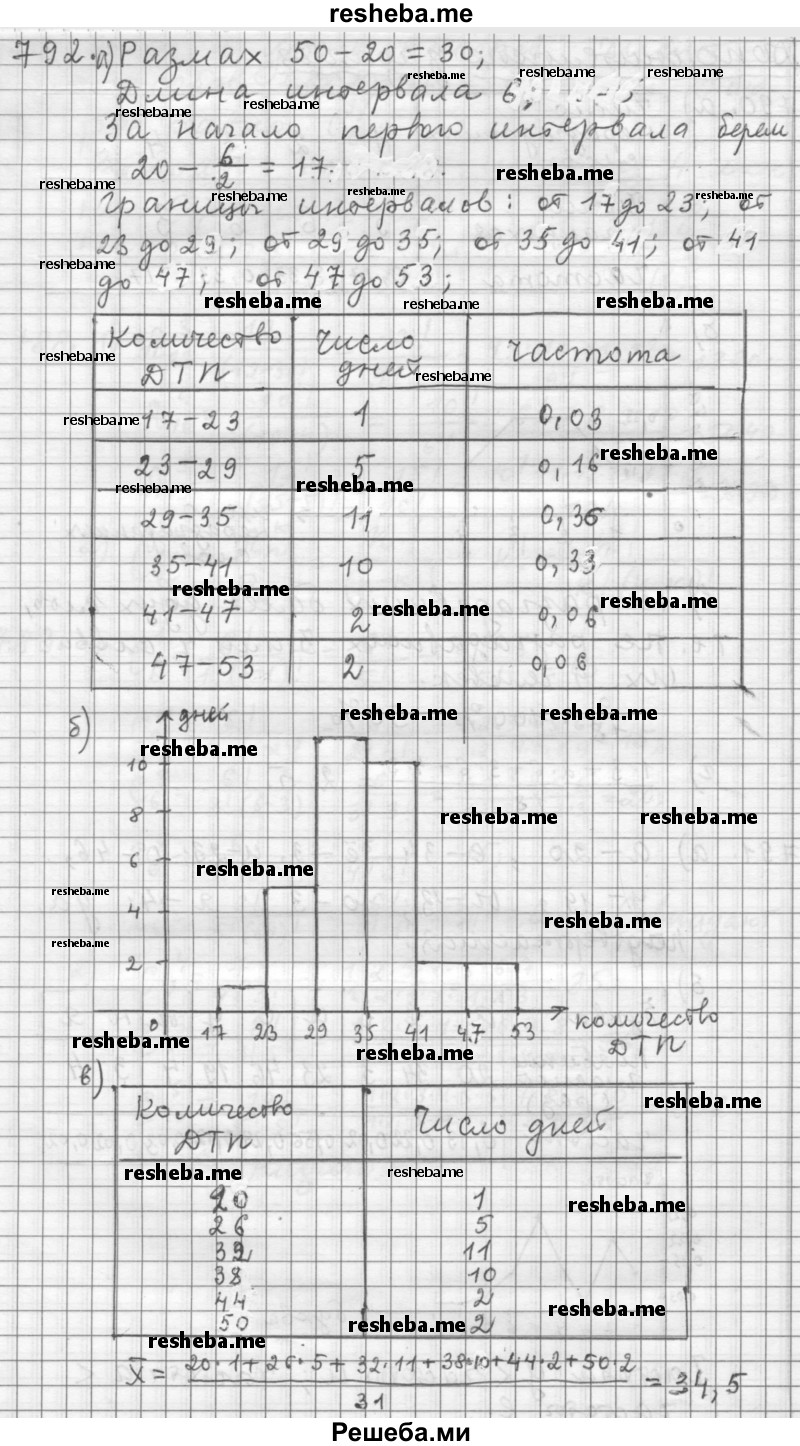 resheba.me
792. а) Размах 50 - 20 = 30;
resheba.me resheba.me resheba.me
Длина интервала 6;
resheba.me resheba.me
За начало первого интервала берем
20 - 6/2 = 17.
resheba.me
resheba.me resheba.me resheba.me resheba.me
Границы интервалов: от 17 до 23; от
23 до 29; от 29 до 35; от 35 до 41; от 41
resheba.me
до 47; от 47 до 53;
resheba.me resheba.me resheba.me
Количество ДТП Число дней частота
resheba.me resheba.me
17-23 1 0,03
resheba.me
23-29 5 0,16
resheba.me
resheba.me resheba.me
29-35 11 0,36
35-41 10 0,33
resheba.me
41-47 2 0,06
resheba.me resheba.me
47-53 2 0,06
б) дней
resheba.me resheba.me
resheba.me
10
8
resheba.me resheba.me
6
resheba.me
resheba.me
4
resheba.me
resheba.me
2
0 17 23 29 35 41 47 53 количество ДТП
resheba.me resheba.me
в)
resheba.me
Количество ДТП Число дней
resheba.me resheba.me
20 1
resheba.me
26 5
32 11
38 10
44 2
resheba.me
50 2
resheba.me
resheba.me
X̅ = 20·1+26·5+32·11+38·10+44·2+50·2 / 31 = 34,5
Решеба.ми